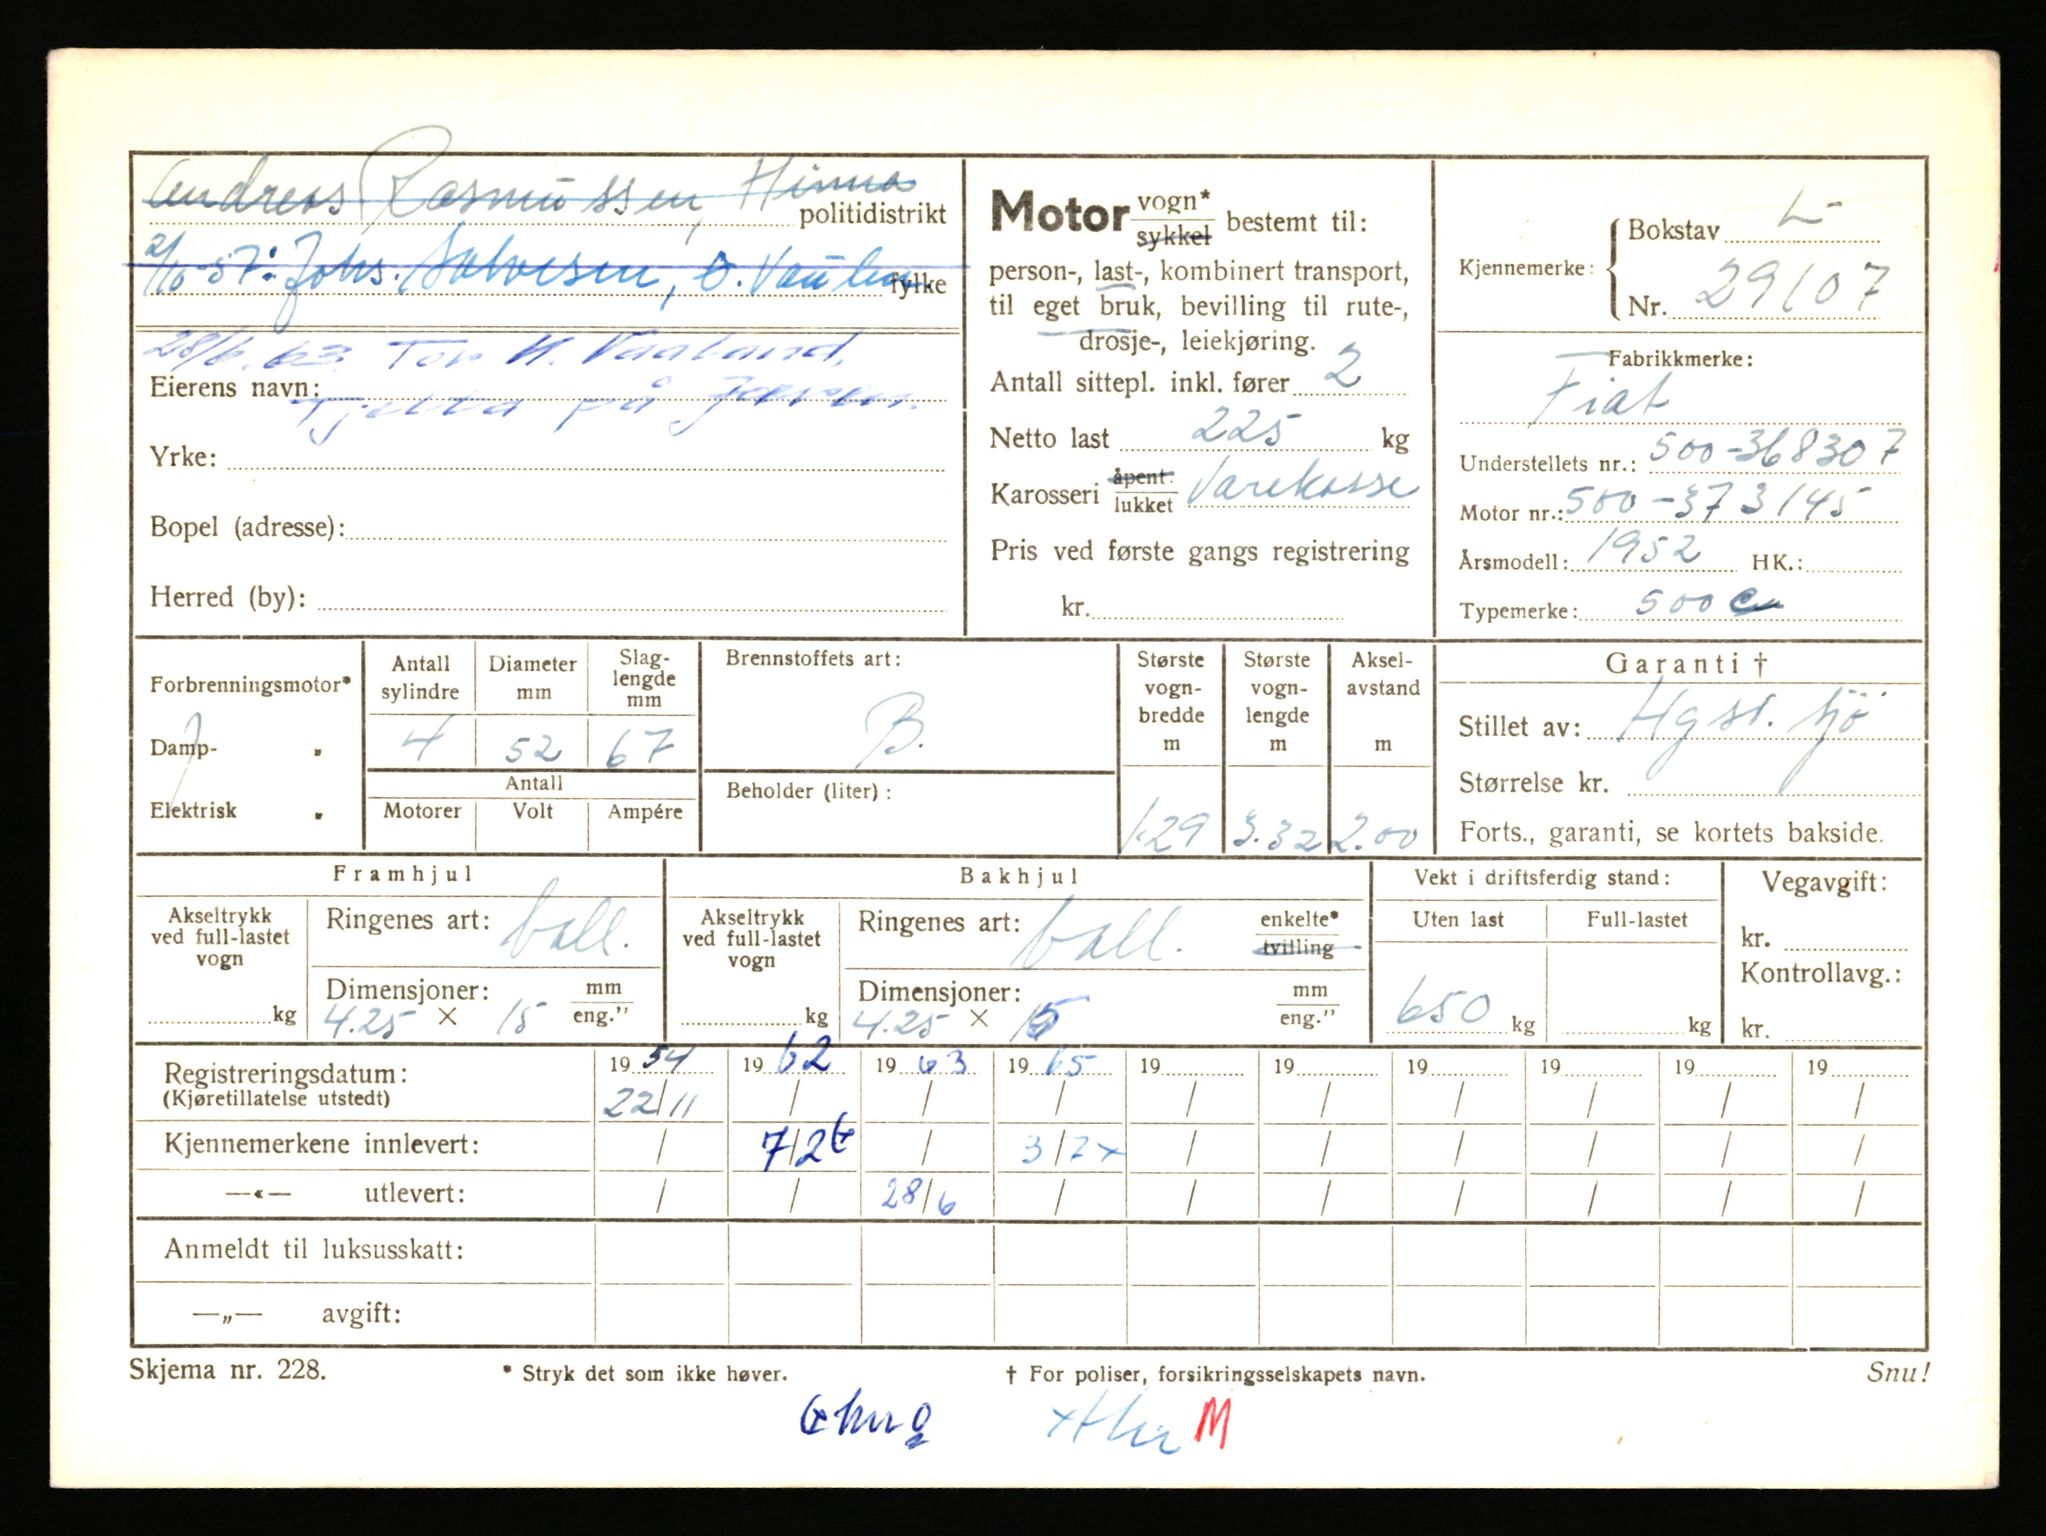 Andreas Rasmussen, Hinna politidistrikt
2/10-57: Johs. Salvesen, Ø. Vaulen fylke
28/6.63. Tor N. Vaaland,
Eierens navn: Tjelta på Jæren.
Yrke:
Bopel (adresse):
Herred (by):
Motor vogn* sykkel bestemt til:
person-, last-, kombinert transport,
til eget bruk, bevilling til rute-,
drosje-, leiekjøring.
Antall sittepl. inkl. fører 2
Netto last 225 kg
Karosseri åpent: lukket Varekasse
Pris ved første gangs registrering
kr.
Kjennemerke: Bokstav L-
Nr. 29107
Fabrikkmerke:
Fiat
Understellets nr.: 500-368307
Motor nr.: 500-373145
Årsmodell: 1952 HK.:
Typemerke: 500 C
Forbrenningsmotor*
Damp- "
Elektrisk "
Antall sylindre Diameter mm Slag-lengde mm
4 52 67
Antall
Motorer Volt Ampére
Brennstoffets art:
B.
Beholder (liter):
Største vogn-bredde m Største vogn-lengde m Aksel-avstand m
1.29 3.32 2.00
Garanti †
Stillet av: Hgsd. Sjö
Størrelse kr.
Forts., garanti, se kortets bakside.
Framhjul
Akseltrykk ved full-lastet vogn
kg
Ringenes art: ball.
Dimensjoner: mm
4.25 × 15 eng."
Bakhjul
Akseltrykk ved full-lastet vogn
kg
Ringenes art: ball. enkelte* tvilling
Dimensjoner: mm
4.25 × 15 eng."
Vekt i driftsferdig stand:
Uten last Full-lastet
650 kg kg
Vegavgift:
kr.
Kontrollavg.:
kr.
Registreringsdatum: 19 54 19 62 19 63 19 65 19 19 19 19 19 19
(Kjøretillatelse utstedt) 22/11 / / / / / / / / /
Kjennemerkene innlevert: / 7/2 / 3/7 x / / / / / /
—«— utlevert: / / 28/6 / / / / / / /
Anmeldt til luksusskatt:
—„— avgift:
Skjema nr. 228. * Stryk det som ikke høver. † For poliser, forsikringsselskapets navn. Snu!
M